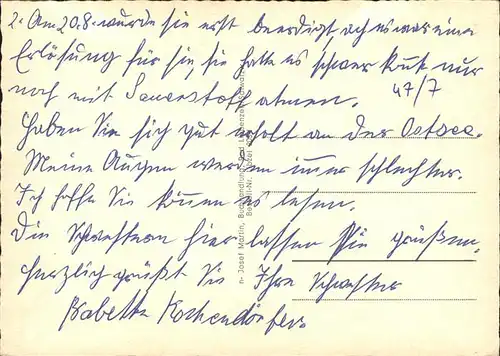 2. Am 20.8. wurde sie erst beerdigt, ach es war eine
Erlösung für sie, sie hatte es schwer konnte nur
noch mit Sauerstoff atmen. 47/7
Haben Sie sich gut erholt an der Ostsee.
Meine Augen werden immer schlechter.
Ich hoffe Sie können es lesen.
Die Schwestern hier lassen Sie grüßen.
Herzlich grüßt Sie Ihre Schwester
Babette Kochendörfer.
Josef Martin, Buchhandlung, Bad Liebenzell